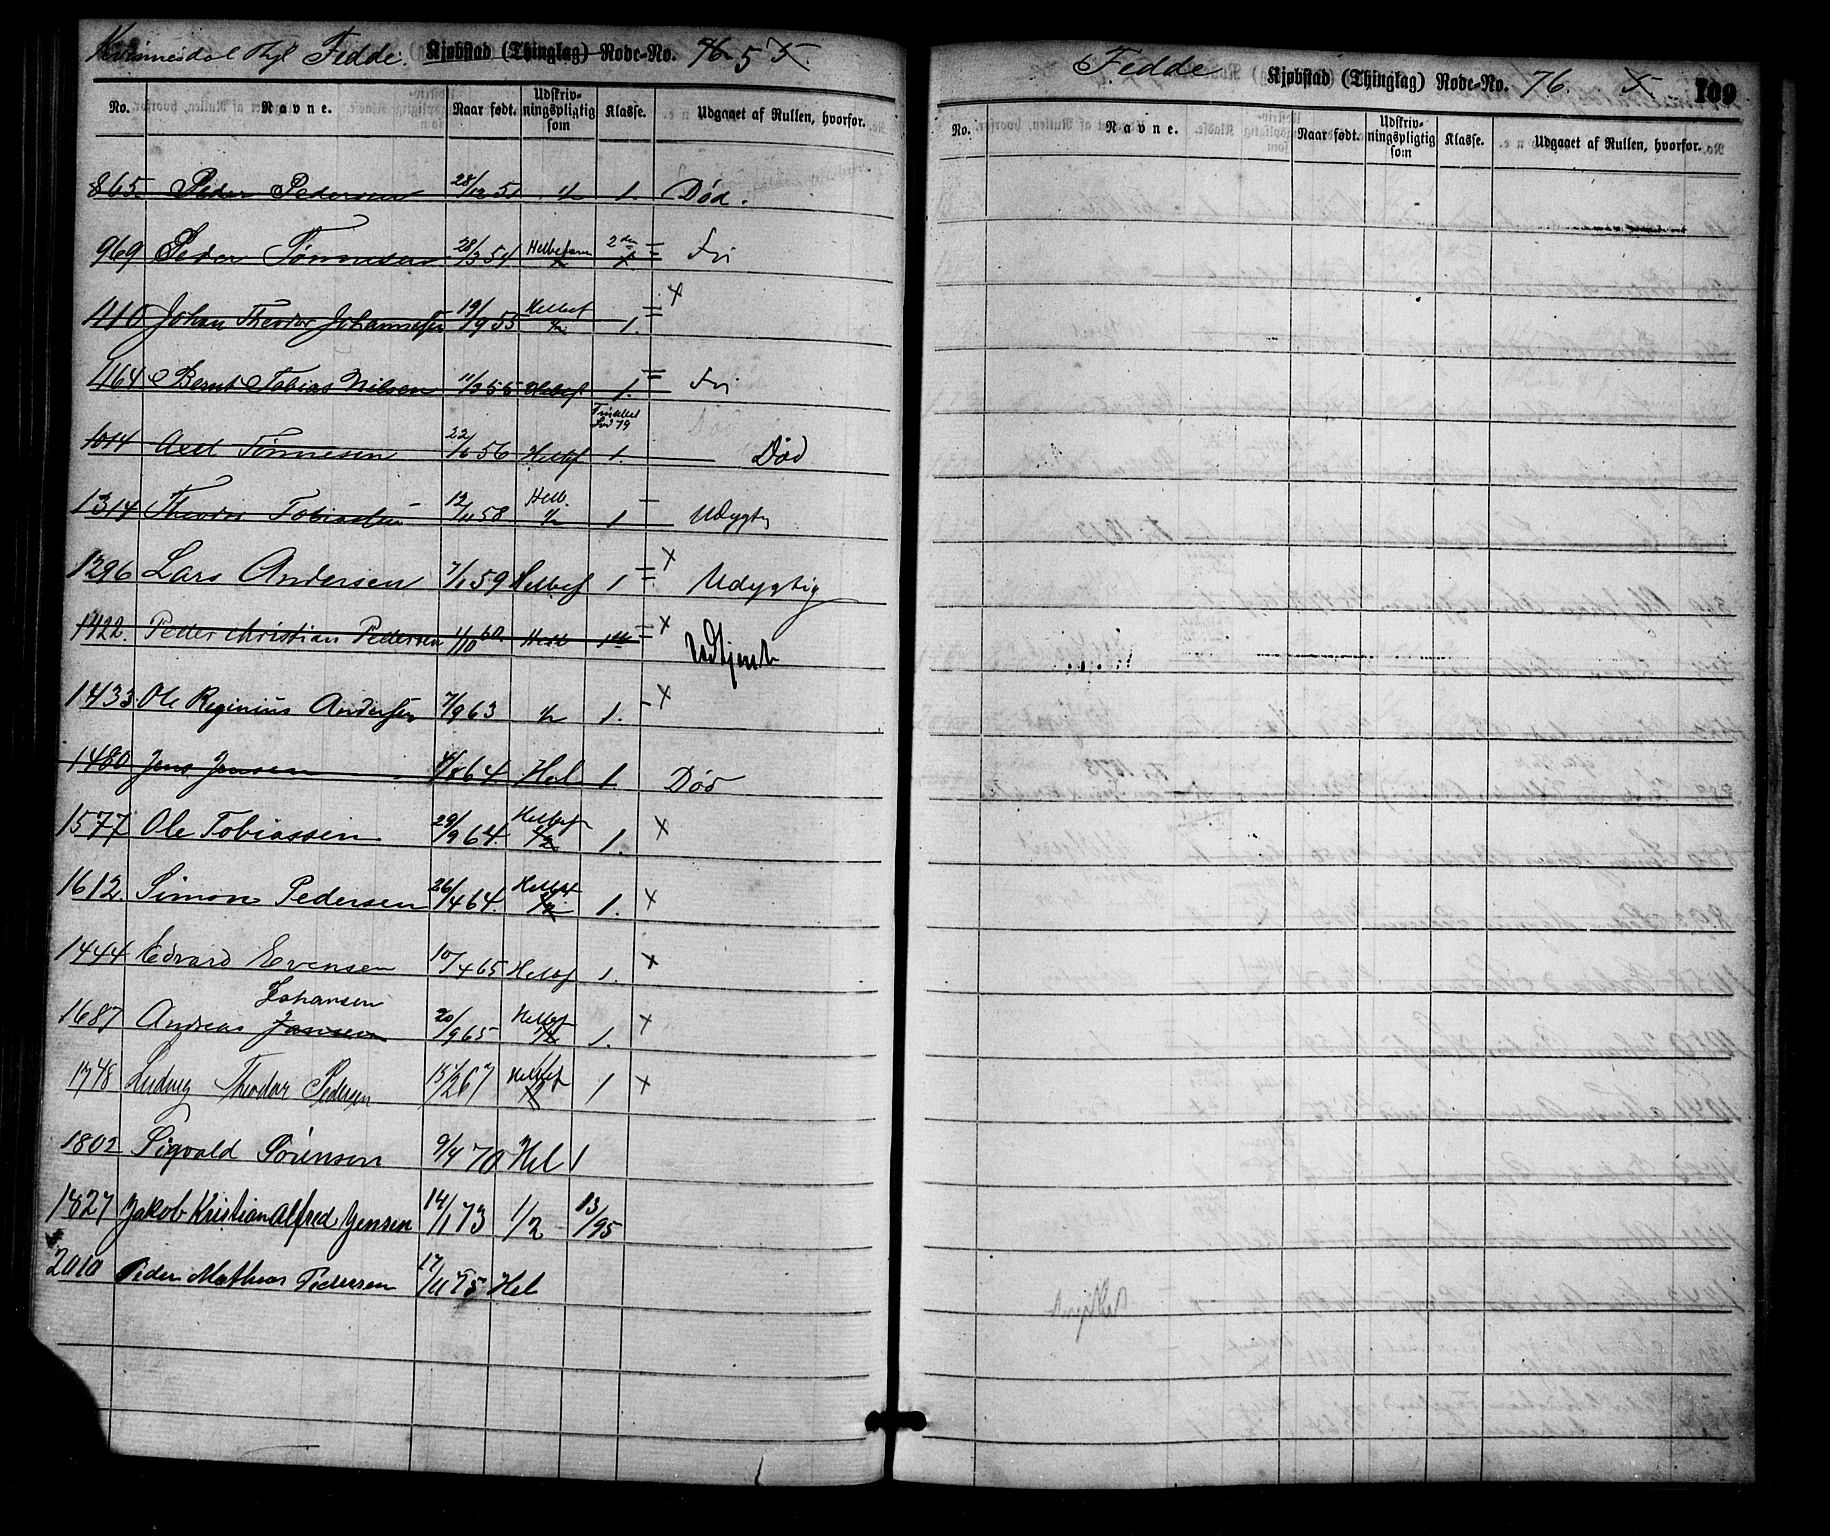 Fedde. Kjøbstad (Thinglag) Rode-No. 76 5 X.
No. Navne. Naar født. Udskrivningspligtig som Klasse. Udgaaet af Rullen, hvorfor.
865. Peder Pedersen 28/12 51 1/2 1. Død.
969 Peder Tønnesen 28/3 54 Helbefaren 2den Fri
410 Johan Theodor Johannesen 19/9 55 Helbef 1/2 1. X
464 Bernt Tobias Nilsen 11/3 56 Helbef 1. Fri
1014 Axel Tønnesen 22/6 56 Helbef 1. Død
1314 Theodor Tobiassen 12/11 58 Helb. 1/2 1 Udygtig
1296 Lars Andersen 7/1 59 Helbef 1 X Udygtig
1422. Peder Christian Pedersen 1/10 60. Helb 1ste X Udtjent
1433. Ole Reginius Andersen 7/9 63 1/2 1. X
1480 Jens Jensen 4/8 64 Hel 1 Død
1577 Ole Tobiassen 29/9 64. Helbef 1/2 1. X
1612. Simon Pedersen 26/4 64. Helbef 1/2 1. X
1444 Edvard Evensen 10/4 65 Helbf 1. X
Johansen
1687 Andreas Jansen 20/9 65 Helbef 1/2 1. X
1748 Ludvig Theodor Pedersen 15/2 67 Helbef 1/2 1 X
1802 Sigvald Sørensen 9/4 70 Hel 1
1827 Jakob Kristian Alfred Jensen 14/1 73 1/2 13/95
2010 Peder Mathias Pedersen 17/11 75 Hel
Fedde Kjøbstad (Thinglag) Rode-No. 76. X 109
No. Navne. Naar født. Udskrivningspligtig som Klasse. Udgaaet af Rullen, hvorfor.